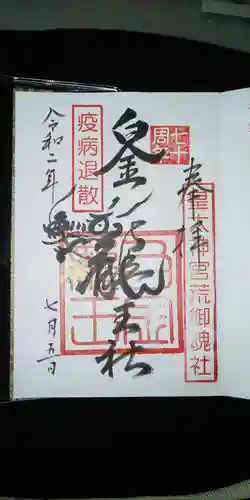 奉拝
皇大神宮荒御魂社
七十
周年
白金龍王社
疫病退散
令和二年
七月五日